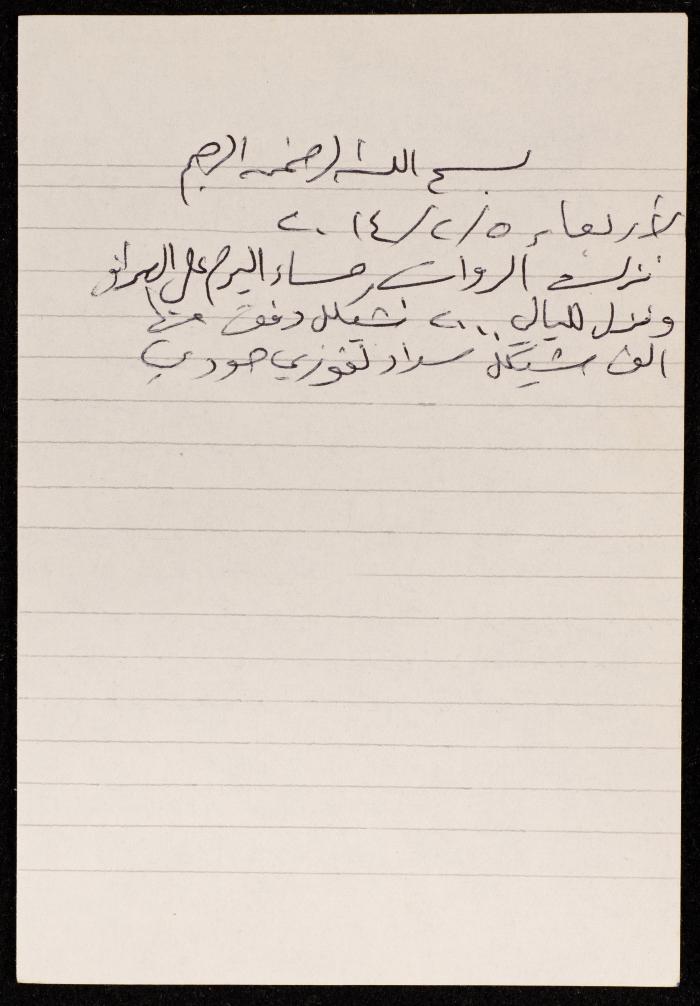 بسم الله الرحمن الرحيم
الأربعاء ٢٠١٤/٢/٥
نزلت الرواتب مساء اليوم على الصراف
ونزل لليالي ٢٠٠٠ شيكل دفعت منها
الف شيكل سداد لفوزي حمودي